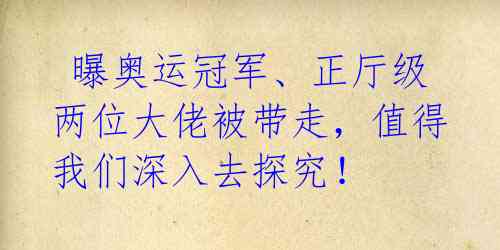 曝奥运冠军、正厅级
两位大佬被带走，值得
我们深入去探究！